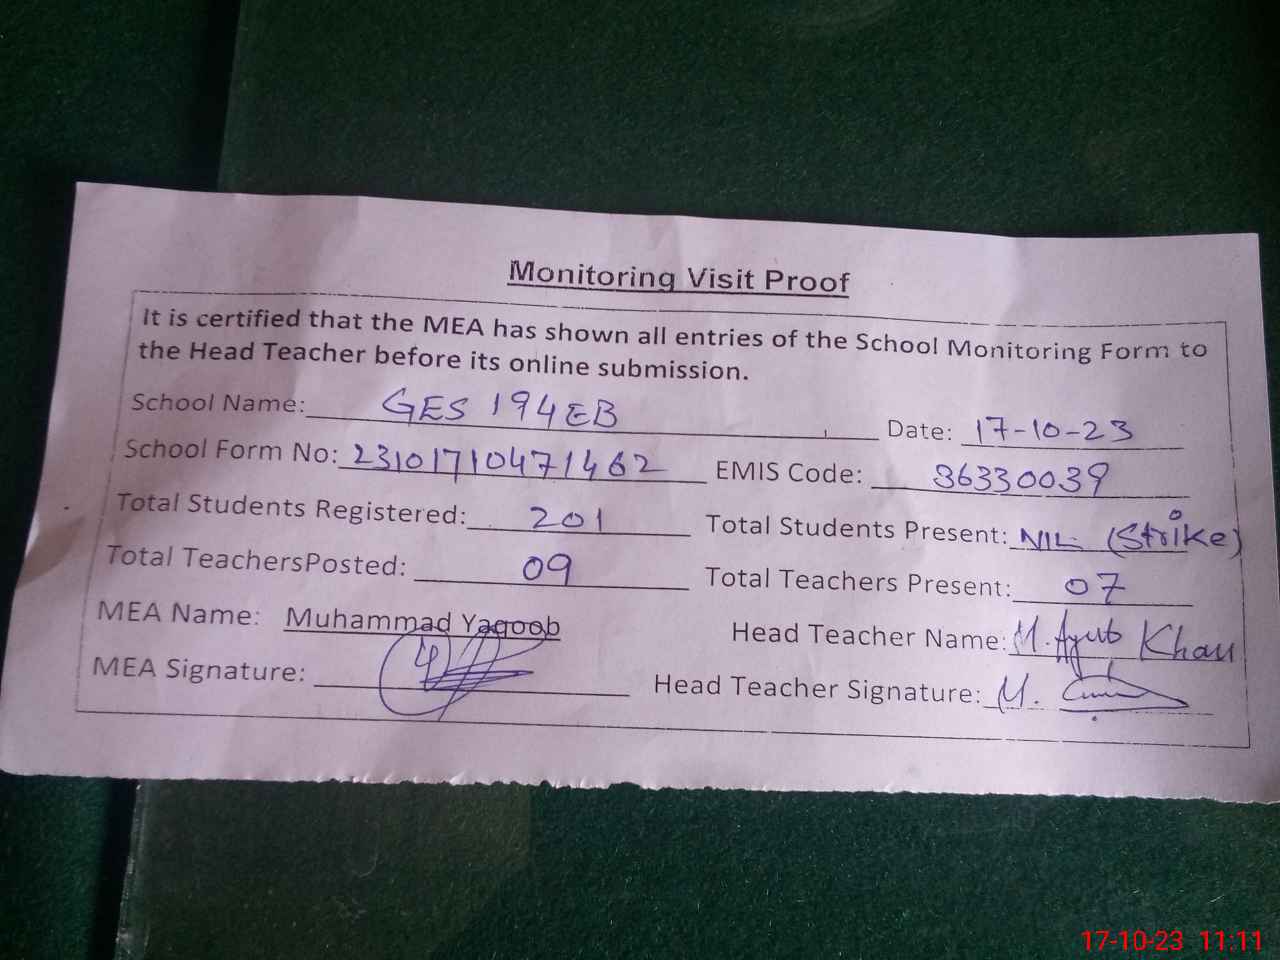 Monitoring Visit Proof
It is certified that the MEA has shown all entries of the School Monitoring Form to
the Head Teacher before its online submission.
School Name: GES 194EB Date: 17-10-23
School Form No: 23101710471462 EMIS Code: 36330039
Total Students Registered: 201 Total Students Present: NIL (Strike)
Total TeachersPosted: 09 Total Teachers Present: 07
MEA Name: Muhammad Yaqoob Head Teacher Name: M. Ayub Khan
MEA Signature: Head Teacher Signature: M.
17-10-23 11:11